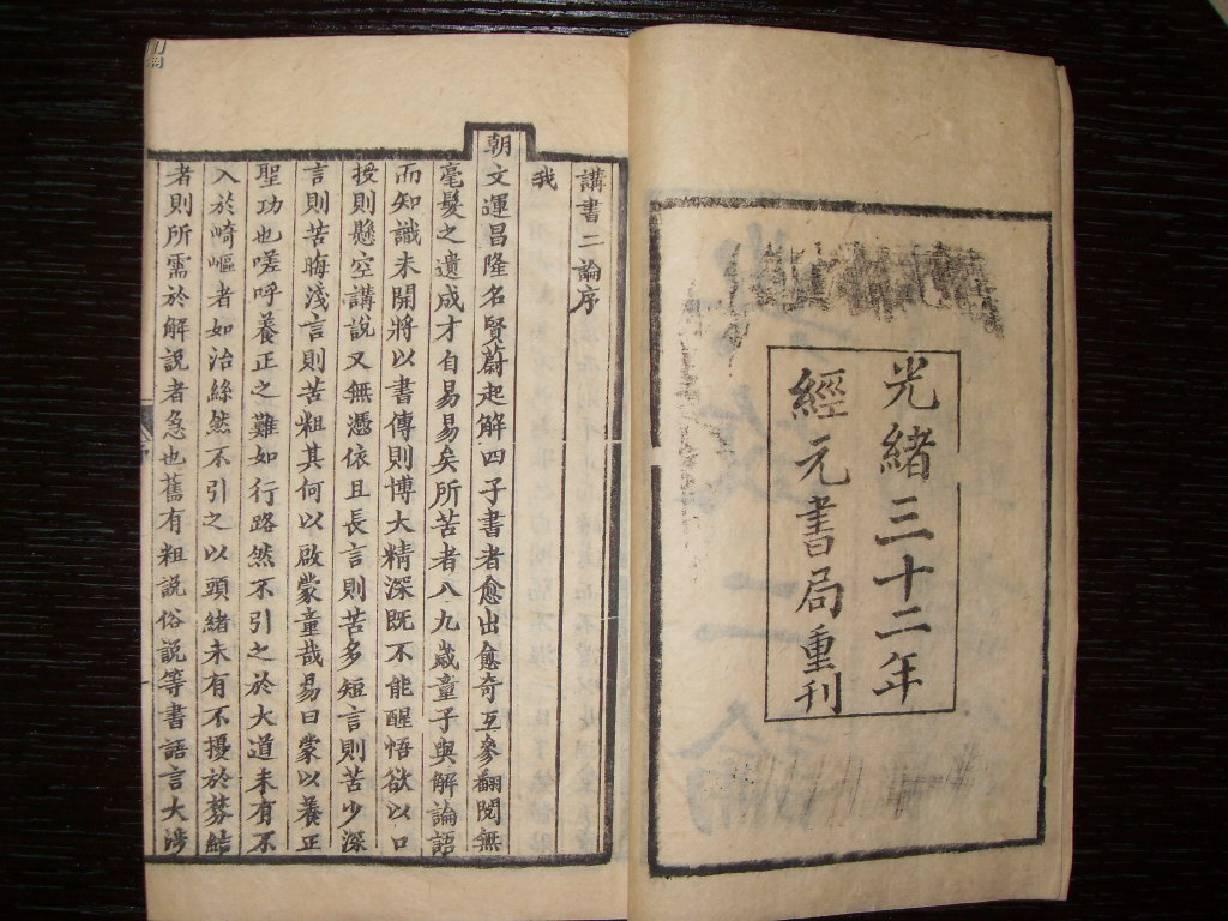 光緒三十二年
經元書局重刊
講書二論序
我
朝文運昌隆名賢蔚起解四子書者愈出愈奇互參翻閱無
毫髮之遺成才自易易矣所苦者八九歲童子與解論語
而知識未開將以書傳則博大精深既不能醒悟欲以口
授則懸空講說又無憑依且長言則苦多短言則苦少深
言則苦晦淺言則苦粗其何以啟蒙童哉易曰蒙以養正
聖功也嗟呼養正之難如行路然不引之於大道未有不
入於崎嶇者如治絲然不引之以頭緒未有不擾於棼結
者則所需於解説者急也舊有粗説俗説等書語言大涉